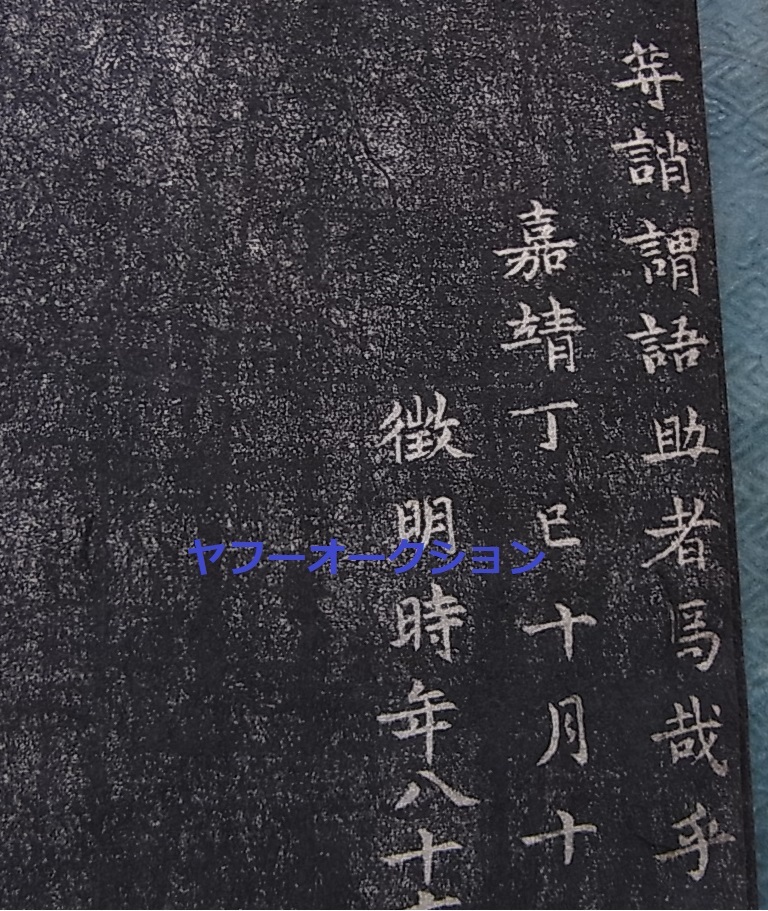 等誚謂語助者焉哉乎
嘉靖丁巳十月十
徵明時年八十
ヤフーオークション